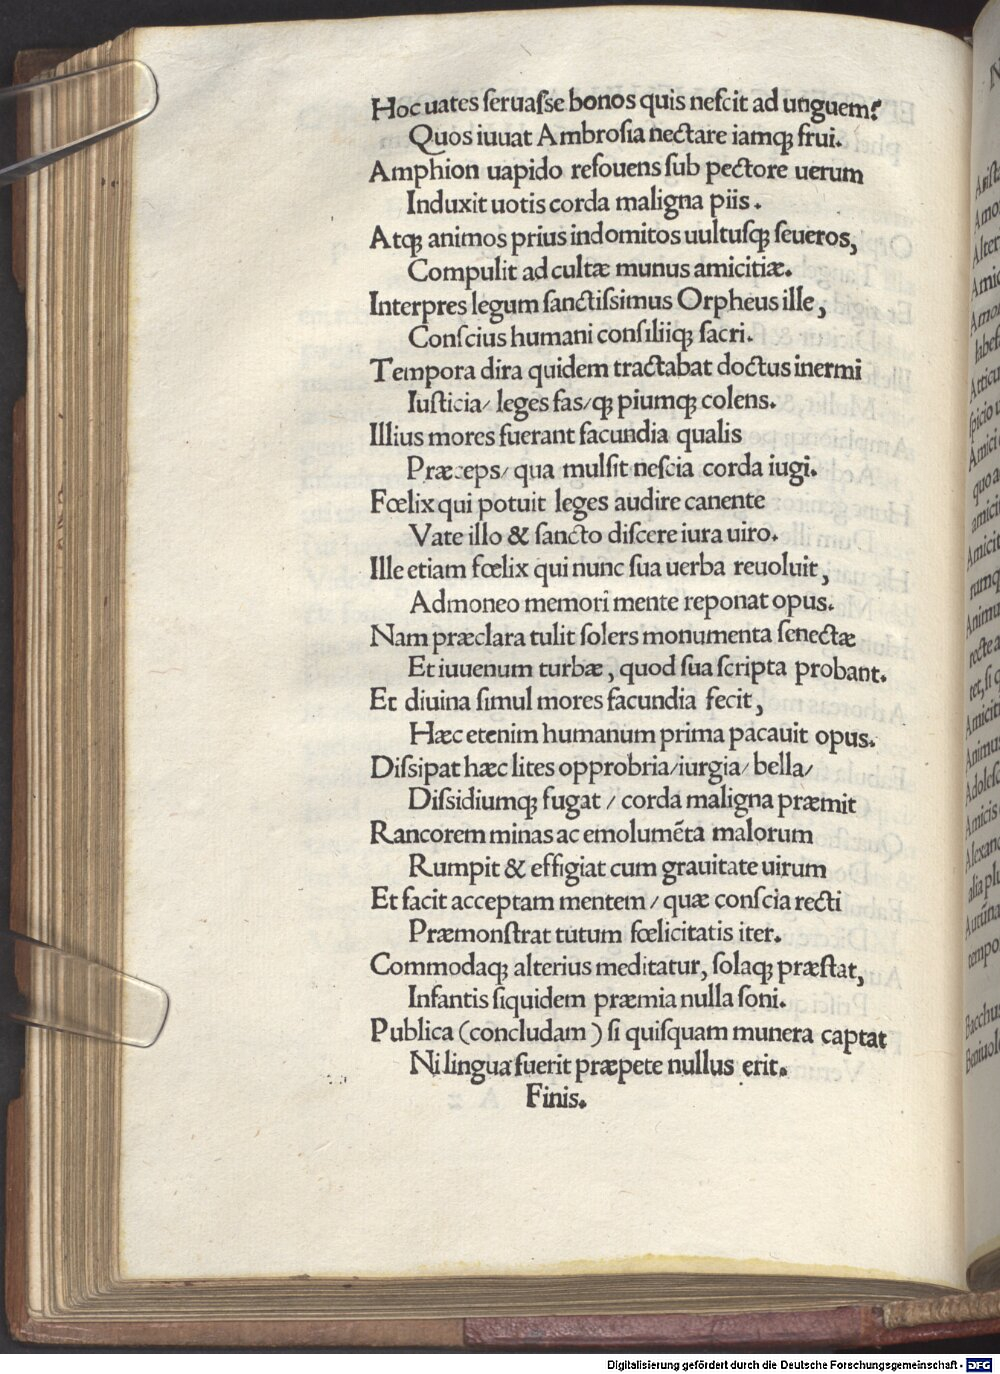 Hoc uates ſeruaſſe bonos quis neſcit ad unguem?
Quos iuuat Ambroſia nectare iamqꝫ frui.
Amphion uapido refouens ſub pectore uerum
Induxit uotis corda maligna piis.
Atqꝫ animos prius indomitos uultuſqꝫ ſeueros,
Compulit ad cultæ munus amicitiæ.
Interpres legum ſanctiſſimus Orpheus ille,
Conſcius humani conſiliiqꝫ ſacri.
Tempora dira quidem tractabat doctus inermi
Iuſticia/ leges fas/qꝫ piumqꝫ colens.
Illius mores fuerant facundia qualis
Præceps/ qua mulſit neſcia corda iugi.
Fœlix qui potuit leges audire canente
Vate illo & ſancto diſcere iura uiro.
Ille etiam fœlix qui nunc ſua uerba reuoluit,
Admoneo memori mente reponat opus.
Nam præclara tulit ſolers monumenta ſenectæ
Et iuuenum turbæ, quod ſua ſcripta probant.
Et diuina ſimul mores facundia fecit,
Hæc etenim humanum prima pacauit opus.
Diſſipat hæc lites opprobria/iurgia/ bella/
Diſſidiumqꝫ fugat / corda maligna præmit
Rancorem minas ac emolumēta malorum
Rumpit & effigiat cum grauitate uirum
Et facit acceptam mentem / quæ conſcia recti
Præmonſtrat tutum fœlicitatis iter.
Commodaqꝫ alterius meditatur, ſolaqꝫ præſtat,
Infantis ſiquidem præmia nulla ſoni.
Publica (concludam) ſi quiſquam munera captat
Ni lingua fuerit præpete nullus erit.
Finis.
Digitalisierung gefördert durch die Deutsche Forschungsgemeinschaft - DFG